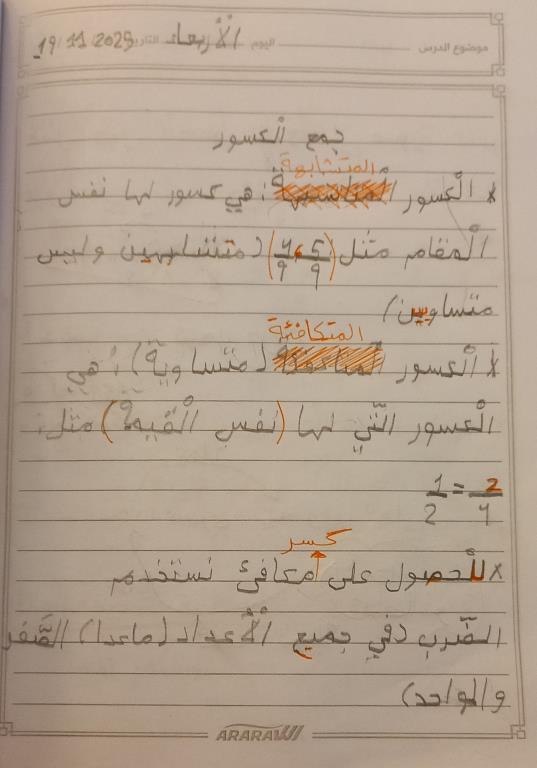 موضوع الدرس اليوم الْأَرْبعاء التاريخ 19/11/2025
جمع الْكسور
المتشابهة
* الْكسور : هي كسور لها نفس
الْمقام مثل (4/9 ، 5/9) (متشابهين وليس
متساويين)
المتكافئة
* الْكسور (متساوية) : هي
الْكسور الّتي لها (نفس الْقيمة) مثل:
1/2 = 2/4
كسر
* للْحصول على مكافئ نستخدم
الضّرب (في جميع الْأعداد (ماعدا) الصّفر
والواحد)
ARARAT